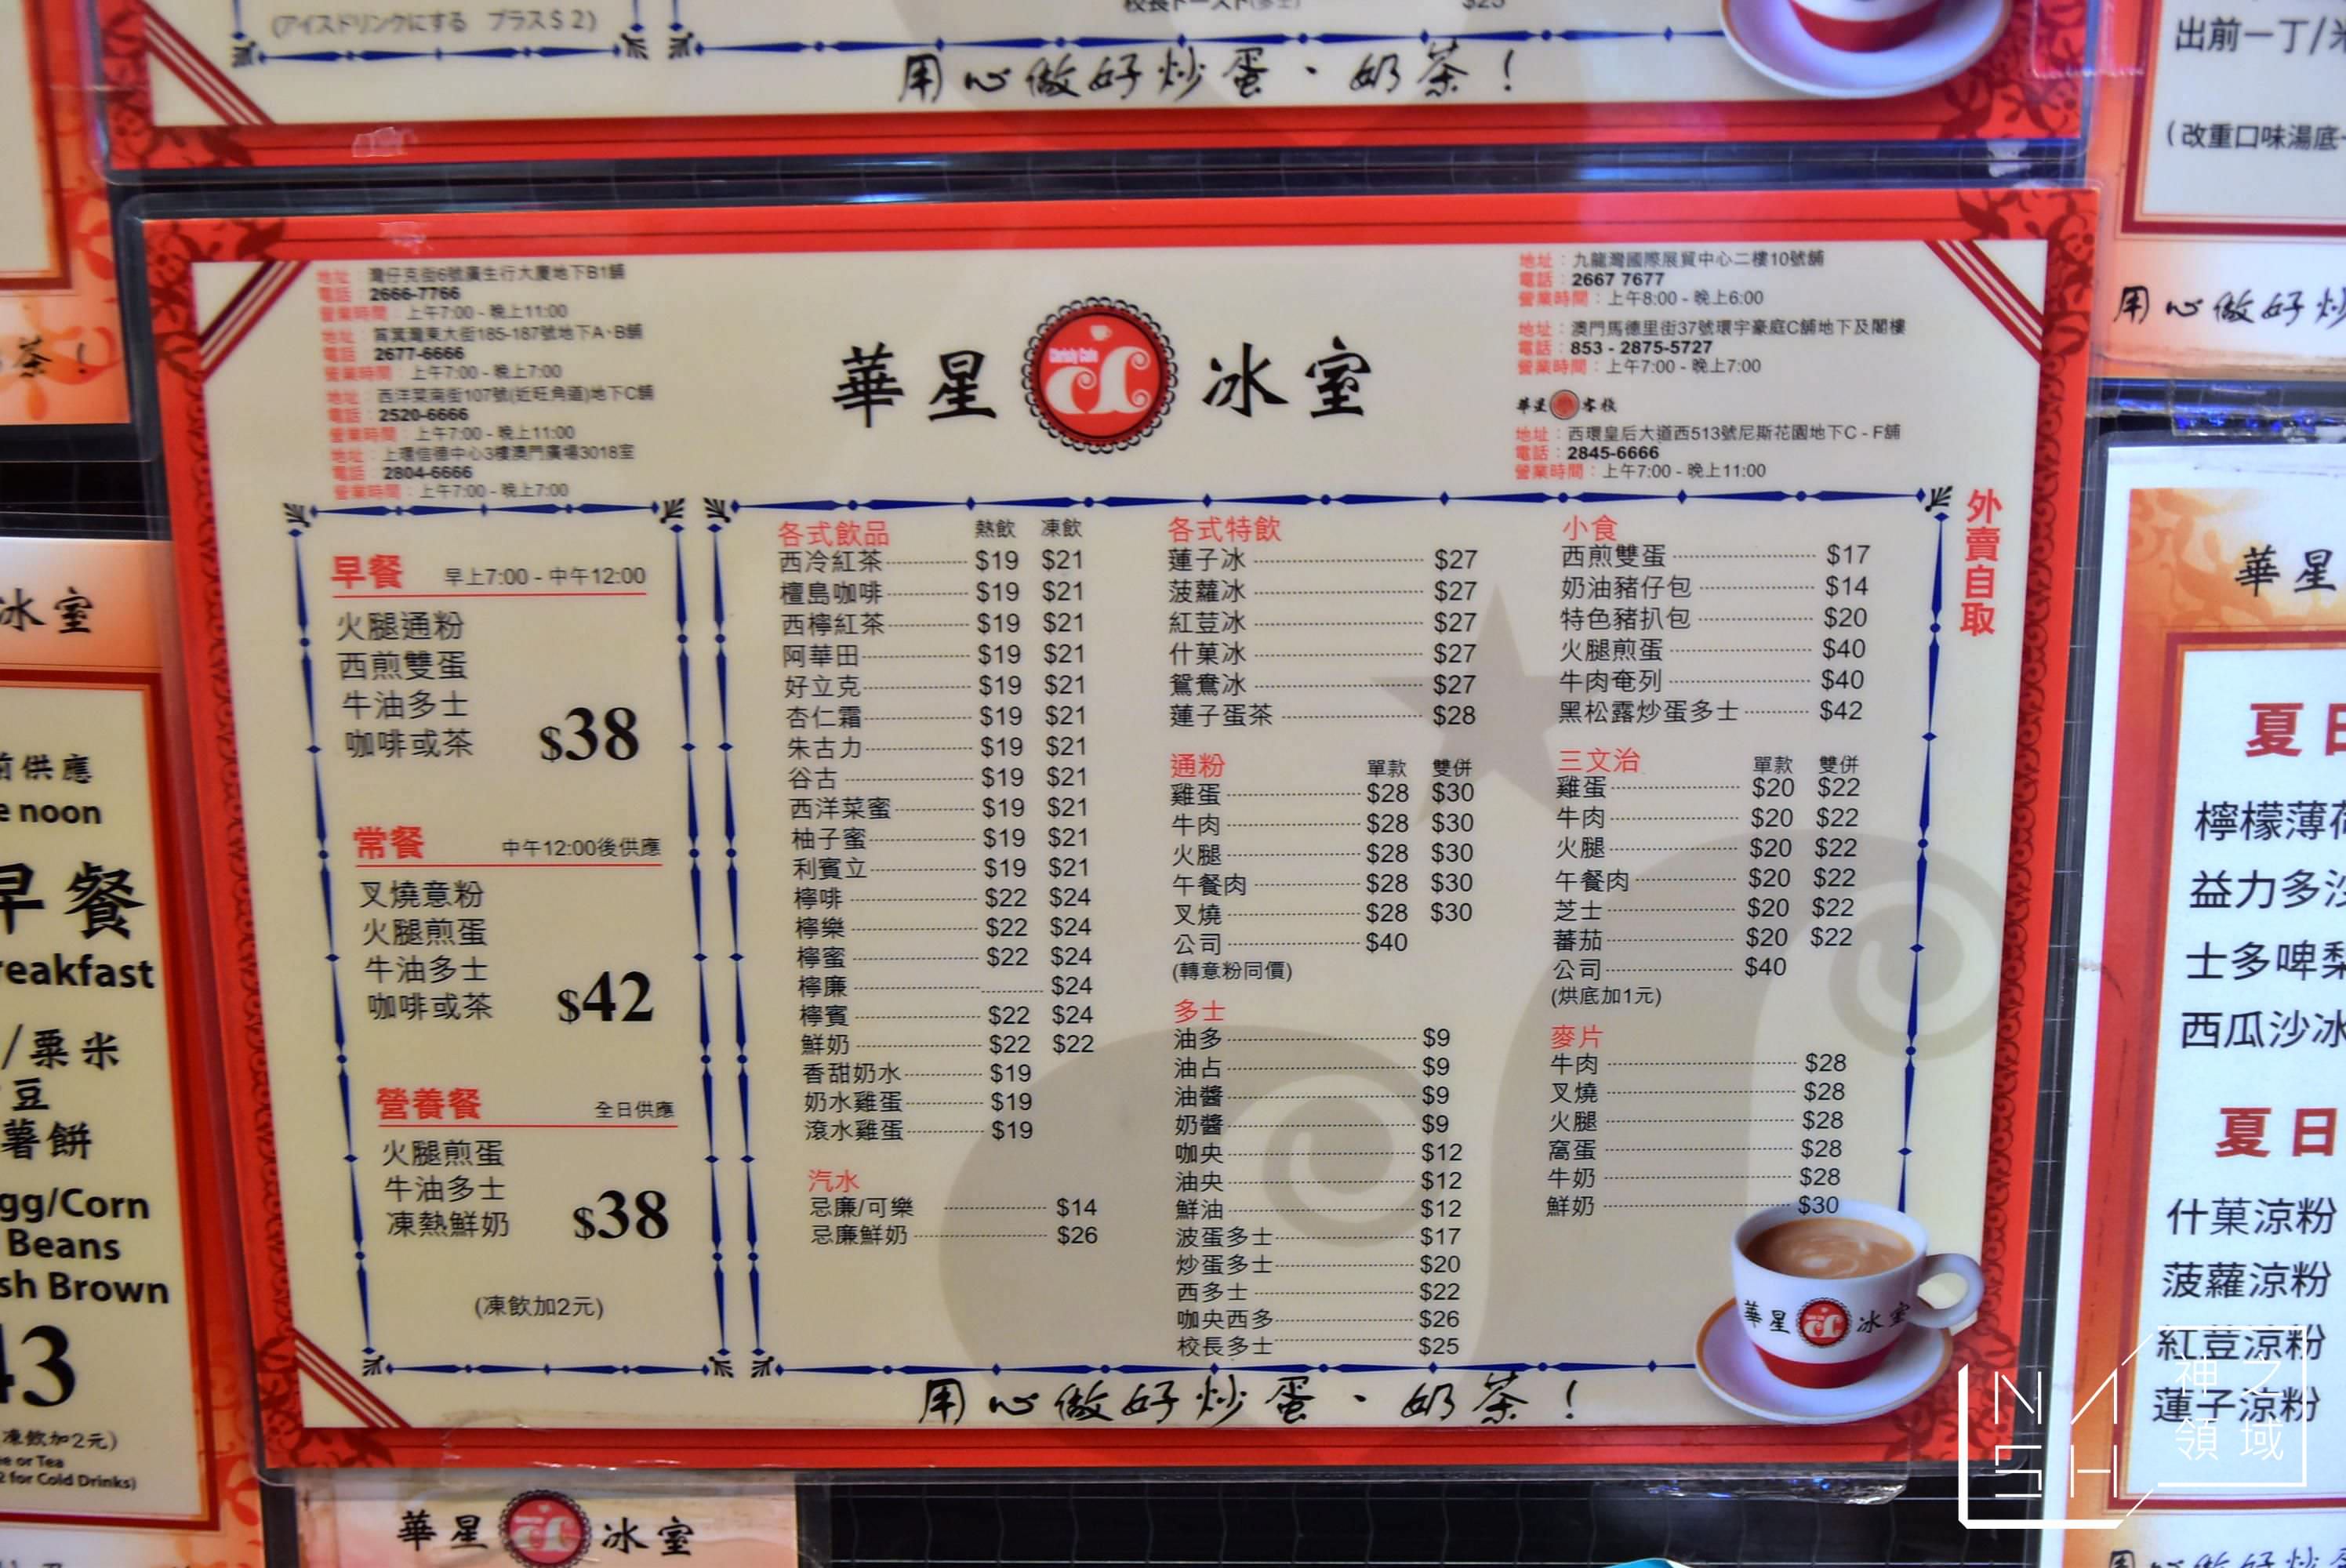 (アイスドリンクにする プラス$2)
用心做好炒蛋、奶茶!
出前一丁/米
(改重口味湯底
地址:灣仔克街6號廣生行大廈地下B1舖
電話:2666-7766
營業時間:上午7:00 - 晚上11:00
地址:筲箕灣東大街185-187號地下A、B舖
電話:2677-6666
營業時間:上午7:00 - 晚上7:00
地址:西洋菜南街107號(近旺角道)地下C舖
電話:2520-6666
營業時間:上午7:00 - 晚上11:00
地址:上環信德中心3樓澳門廣場3018室
電話:2804-6666
營業時間:上午7:00 - 晚上7:00
華星冰室
地址:九龍灣國際展貿中心二樓10號舖
電話:2667 7677
營業時間:上午8:00 - 晚上6:00
地址:澳門馬德里街37號環宇豪庭C舖地下及閣樓
電話:853 - 2875-5727
營業時間:上午7:00 - 晚上7:00
華星客棧
地址:西環皇后大道西513號尼斯花園地下C - F舖
電話:2845-6666
營業時間:上午7:00 - 晚上11:00
外賣自取
早餐 早上7:00 - 中午12:00
火腿通粉
西煎雙蛋
牛油多士
咖啡或茶 $38
常餐 中午12:00後供應
叉燒意粉
火腿煎蛋
牛油多士
咖啡或茶 $42
營養餐 全日供應
火腿煎蛋
牛油多士
凍熱鮮奶 $38
(凍飲加2元)
各式飲品 熱飲 凍飲
西冷紅茶 $19 $21
檀島咖啡 $19 $21
西檸紅茶 $19 $21
阿華田 $19 $21
好立克 $19 $21
杏仁霜 $19 $21
朱古力 $19 $21
谷古 $19 $21
西洋菜蜜 $19 $21
柚子蜜 $19 $21
利賓立 $19 $21
檸啡 $22 $24
檸樂 $22 $24
檸蜜 $22 $24
檸廉 $24
檸賓 $22 $24
鮮奶 $22 $22
香甜奶水 $19
奶水雞蛋 $19
滾水雞蛋 $19
汽水
忌廉/可樂 $14
忌廉鮮奶 $26
各式特飲
蓮子冰 $27
菠蘿冰 $27
紅荳冰 $27
什菓冰 $27
鴛鴦冰 $27
蓮子蛋茶 $28
通粉 單款 雙併
雞蛋 $28 $30
牛肉 $28 $30
火腿 $28 $30
午餐肉 $28 $30
叉燒 $28 $30
公司 $40
(轉意粉同價)
多士
油多 $9
油占 $9
油醬 $9
奶醬 $9
咖央 $12
油央 $12
鮮油 $12
波蛋多士 $17
炒蛋多士 $20
西多士 $22
咖央西多 $26
校長多士 $25
小食
西煎雙蛋 $17
奶油豬仔包 $14
特色豬扒包 $20
火腿煎蛋 $40
牛肉奄列 $40
黑松露炒蛋多士 $42
三文治 單款 雙併
雞蛋 $20 $22
牛肉 $20 $22
火腿 $20 $22
午餐肉 $20 $22
芝士 $20 $22
蕃茄 $20 $22
公司 $40
(烘底加1元)
麥片
牛肉 $28
叉燒 $28
火腿 $28
窩蛋 $28
牛奶 $28
鮮奶 $30
華星冰室
用心做好炒蛋、奶茶!
華星冰室
茶!
冰室
前供應
noon
早餐
reakfast
/粟米
豆
薯餅
gg/Corn
Beans
sh Brown
43
凍飲加2元)
or Tea
2 for Cold Drinks)
用心做好炒
華星
夏日
檸檬薄荷
益力多沙
士多啤梨
西瓜沙冰
夏日
什菓涼粉
菠蘿涼粉
紅荳涼粉
蓮子涼粉
NASH
神之領域